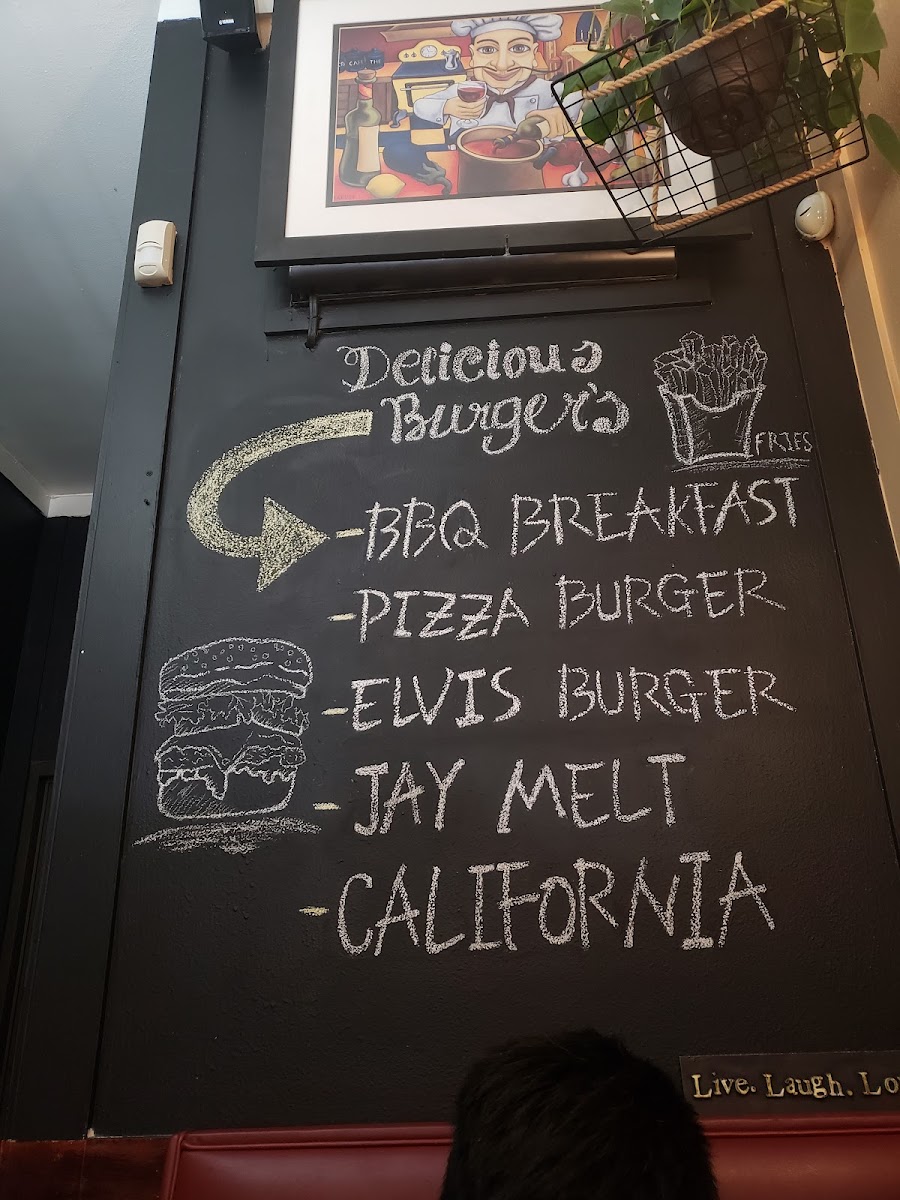 Delicious
Burger's
FRIES
- BBQ BREAKFAST
- PIZZA BURGER
- ELVIS BURGER
- JAY MELT
- CALIFORNIA
Live. Laugh. Lo